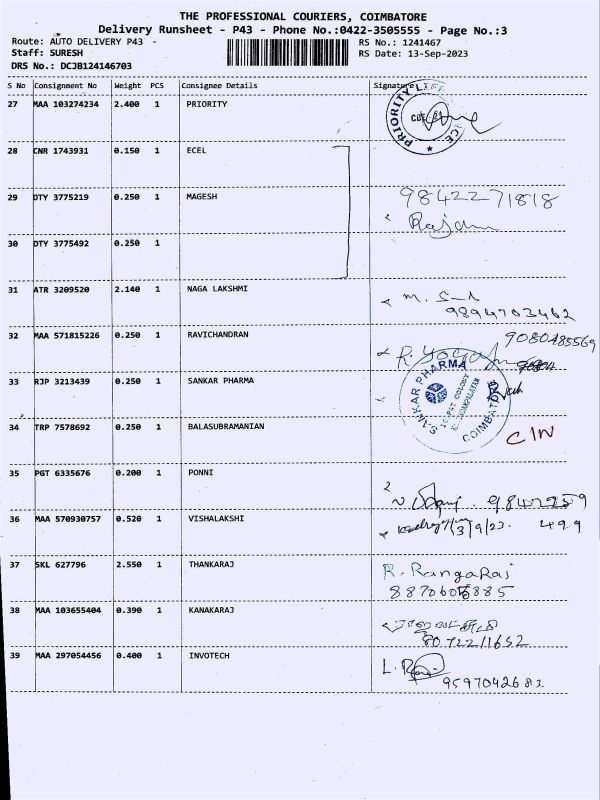 THE PROFESSIONAL COURIERS, COIMBATORE
Delivery Runsheet - P43 - Phone No.:0422-3505555 - Page No.:3
Route: AUTO DELIVERY P43 -
RS No.: 1241467
Staff: SURESH
RS Date: 13-Sep-2023
DRS No.: DCJB124146703
S No Consignment No Weight PCS Consignee Details Signature
27 MAA 103274234 2.400 1 PRIORITY
PRIORITY LIFE
28 CNR 1743931 0.150 1 ECEL
29 DTY 3775219 0.250 1 MAGESH
9842271818
30 DTY 3775492 0.250 1
31 ATR 3209520 2.140 1 NAGA LAKSHMI
9894703462
32 MAA 571815226 0.250 1 RAVICHANDRAN
9080485569
33 RJP 3213439 0.250 1 SANKAR PHARMA
SANKAR PHARMA
COIMBATORE
34 TRP 7578692 0.250 1 BALASUBRAMANIAN
CIN
35 PGT 6335676 0.200 1 PONNI
36 MAA 570930757 0.520 1 VISHALAKSHI
499
37 SKL 627796 2.550 1 THANKARAJ
R. RangaRaj
38 MAA 103655404 0.390 1 KANAKARAJ
8072211652
39 MAA 297054456 0.400 1 INVOTECH
9597042683